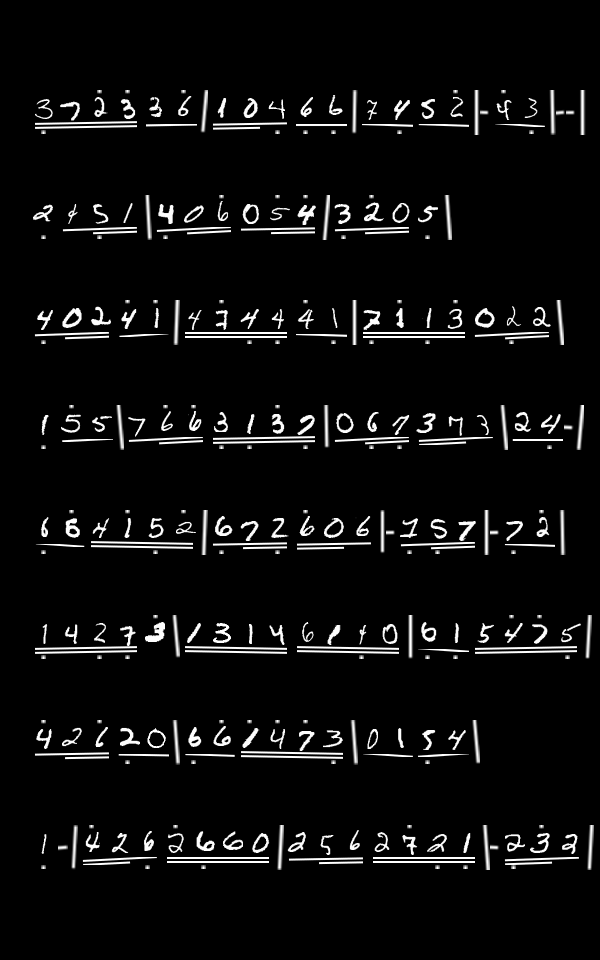 372336|10466|7452|-43--|
2451|406054|3205|
40241|474441|7113022|
155|7663137|067373|24-|
684152|672606|-757|-72|
14273|13146140|615475|
42620|661473|0154|
1-|4262660|2562721|-232|